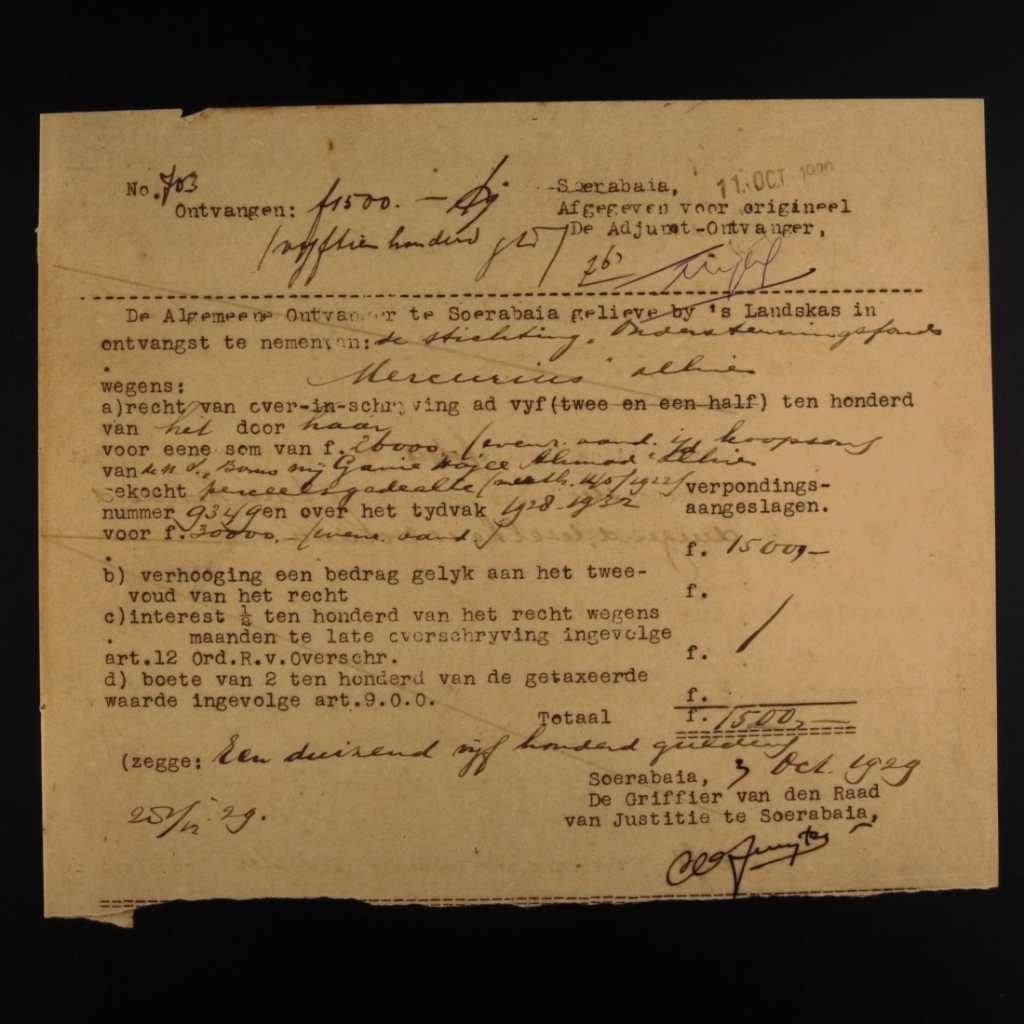 No. 703
Soerabaia, 11. OCT 1929
Ontvangen: f1500.—
Afgegeven voor origineel
(vyftien honderd gld)
De Adjunct-Ontvanger,
De Algemeene Ontvanger te Soerabaia gelieve by 's Landskas in
ontvangst te nemen van: de stichting "Ondersteuningsfonds
Mercurius" alhier
wegens:
a)recht van over-in-schryving ad vyf (twee en een half) ten honderd
van het door haar
voor eene som van f. 26000. (evenr. aand. i/d koopsom
van de N.V. Gania Hajee Ahmad alhier
gekocht perceelsgedeelte
verpondings-
nummer 9349 en over het tydvak 1928-1932
aangeslagen.
voor f. 30000.- (evenr. aand.)
f. 1500,—
b) verhooging een bedrag gelyk aan het twee-
voud van het recht
f.
c)interest ½ ten honderd van het recht wegens
. maanden te late overschryving ingevolge
art.12 Ord.R.v.Overschr.
f.
d) boete van 2 ten honderd van de getaxeerde
waarde ingevolge art.9.O.O.
f.
Totaal f. 1500,—
(zegge: Een duizend vyf honderd gulden)
Soerabaia, 3 Oct. 1929
De Griffier van den Raad
van Justitie te Soerabaia,